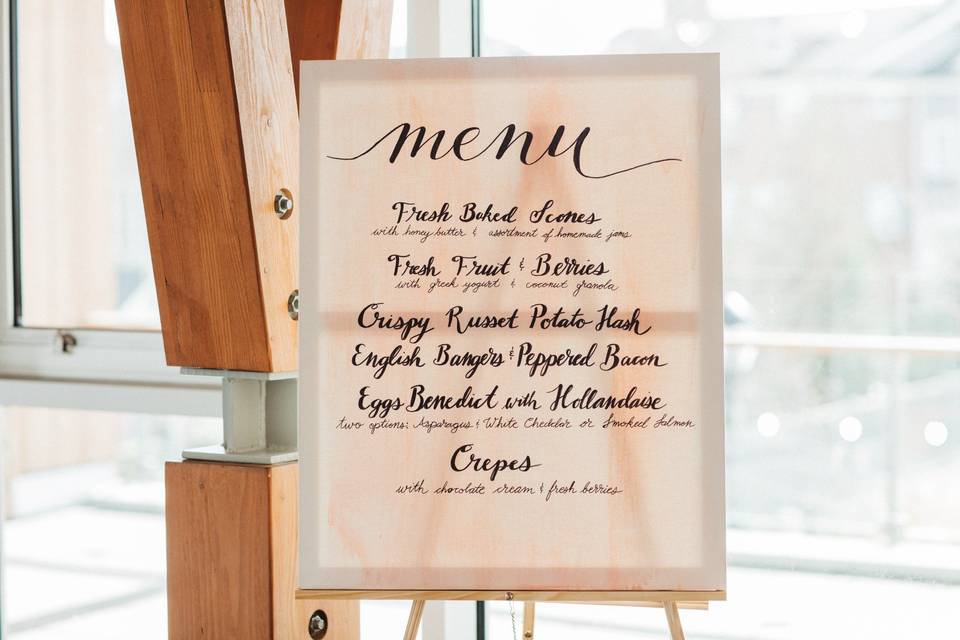 menu
Fresh Baked Scones
with honey butter & assortment of homemade jams
Fresh Fruit & Berries
with greek yogurt & coconut granola
Crispy Russet Potato Hash
English Bangers & Peppered Bacon
Eggs Benedict with Hollandaise
two options: Asparagus & White Cheddar or Smoked Salmon
Crepes
with chocolate cream & fresh berries